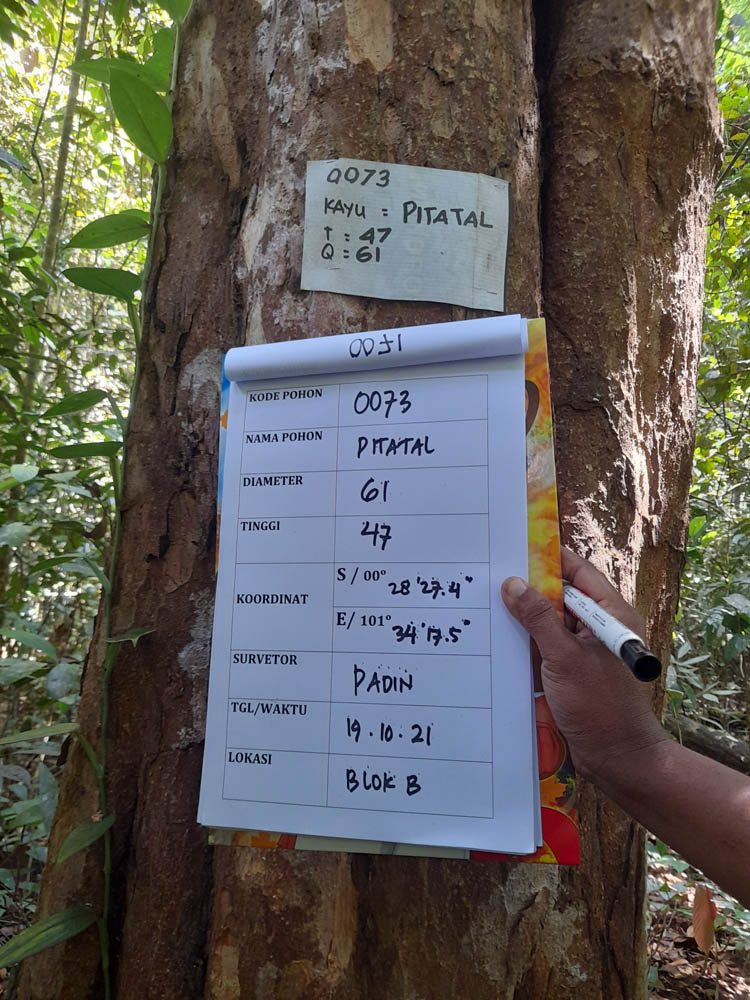 0073
KAYU = PITATAL
T : 47
Q : 61
0071
KODE POHON 0073
NAMA POHON PITATAL
DIAMETER 61
TINGGI 47
KOORDINAT S / 00° 28'27.4"
E/ 101° 34'17.5"
SURVETOR PADIN
TGL/WAKTU 19.10.21
LOKASI BLOK B